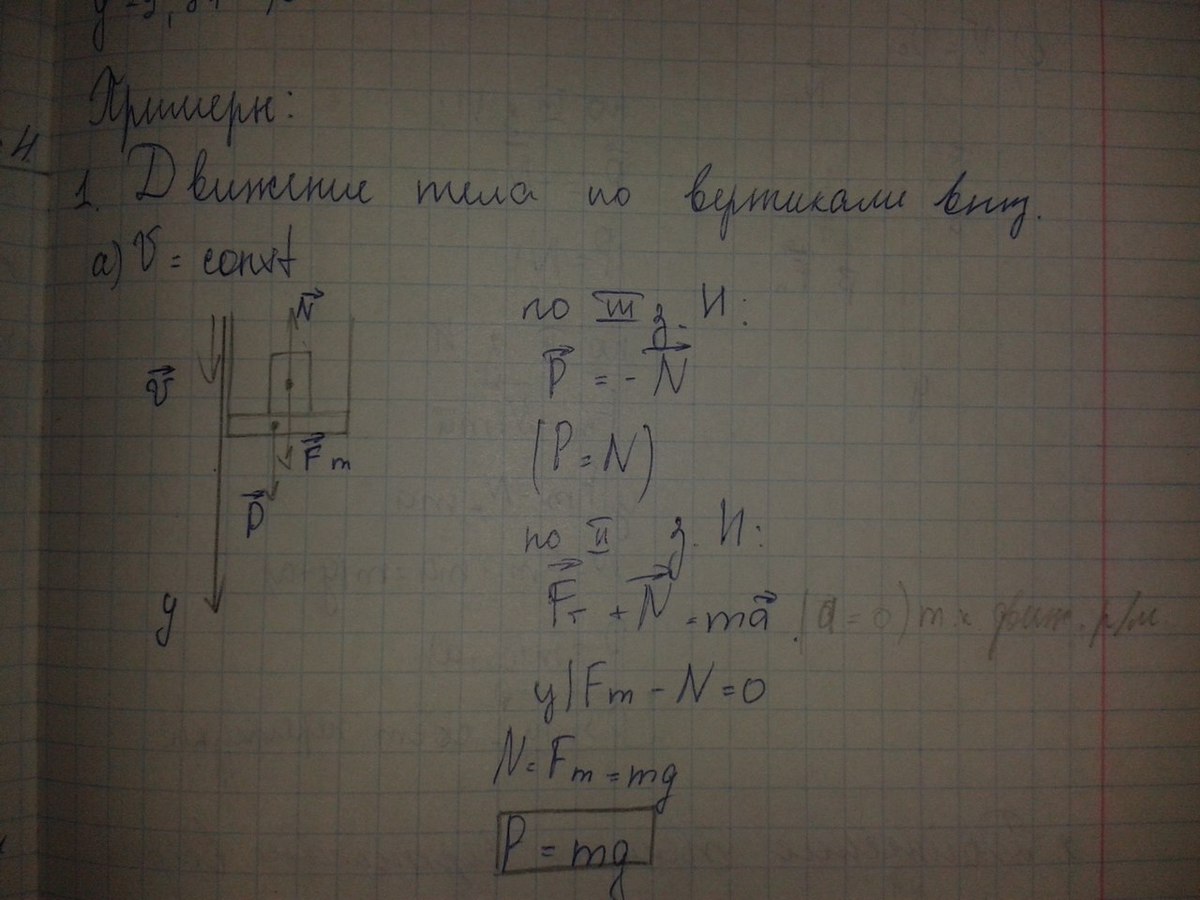 Примеры:
1. Движение тела по вертикали вниз.
а) V = const
N
V
Fт
P
y
по III з. Н:
P = - N
(P = N)
по II з. Н:
Fт + N = ma (a = 0) т к движ. р/м
y| Fт - N = 0
N = Fт = mg
P = mg